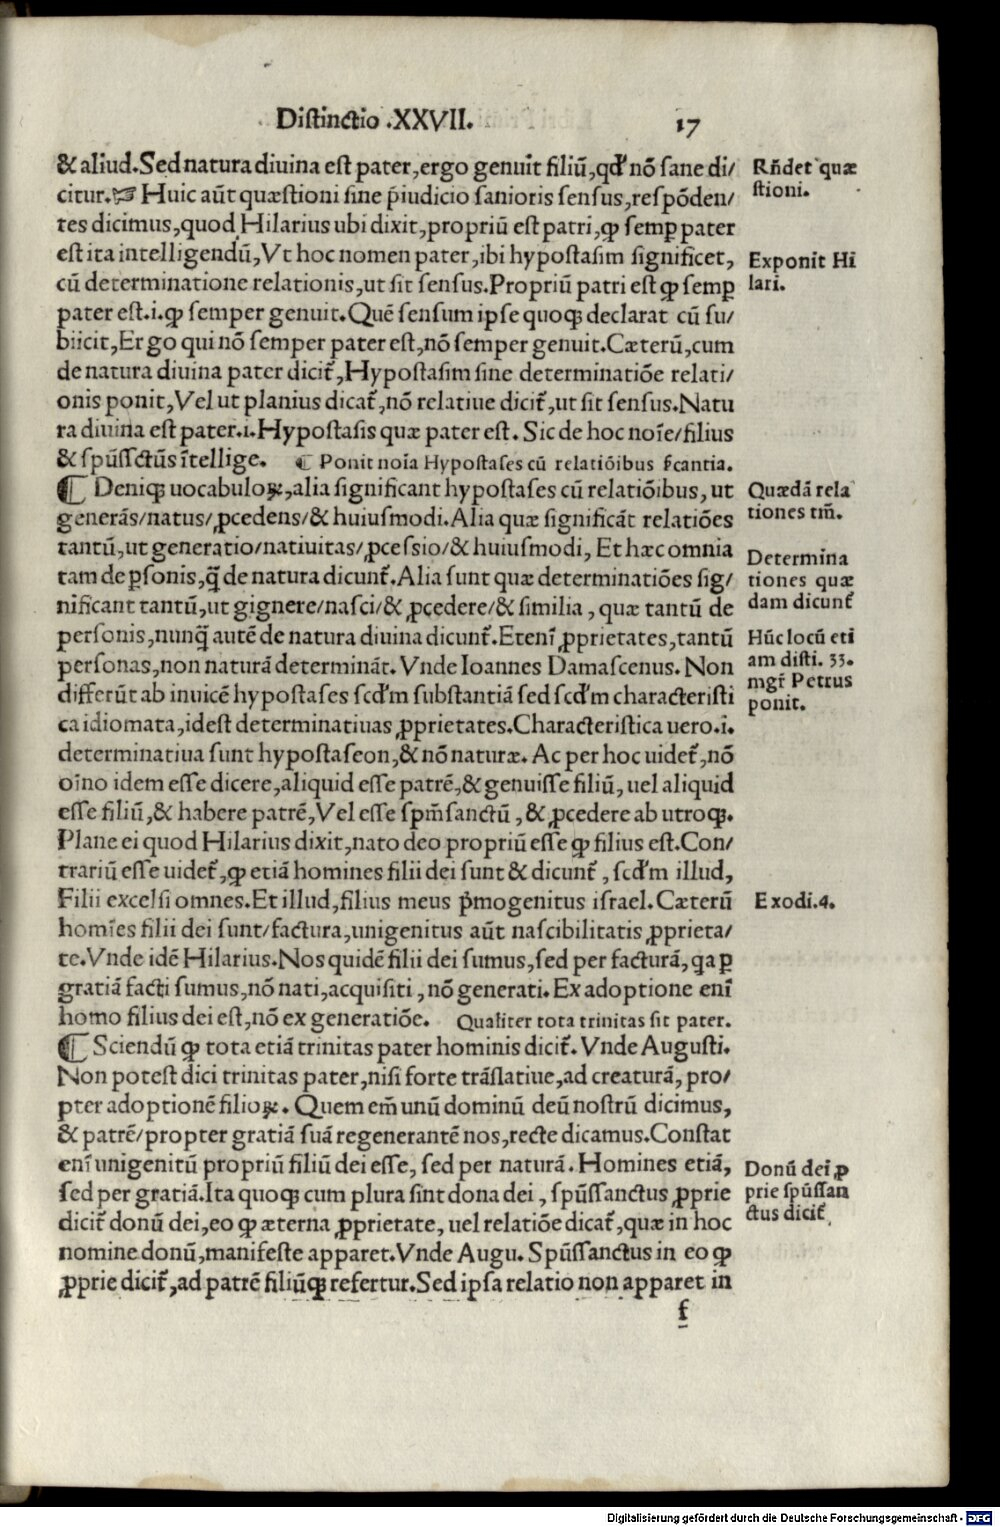 Distinctio .XXVII. 17
& aliud. Sed natura diuina est pater, ergo genuit filiū, qđ nō sane di/
citur.☞ Huic aūt quæstioni sine p̄iudicio sanioris sensus, respōden/
tes dicimus, quod Hilarius ubi dixit, propriū est patri, ꝙ semꝑ pater
est ita intelligendū, Vt hoc nomen pater, ibi hypostasim significet,
cū determinatione relationis, ut sit sensus. Propriū patri est ꝙ semꝑ
pater est .i. ꝙ semper genuit. Quē sensum ipse quoqꝫ declarat cū su/
biicit, Ergo qui nō semper pater est, nō semper genuit. Cæterū, cum
de natura diuina pater dicit̃, Hypostasim sine determinatiōe relati/
onis ponit, Vel ut planius dicat̃, nō relatiue dicit̃, ut sit sensus. Natu
ra diuina est pater .i. Hypostasis quæ pater est. Sic de hoc noīe/filius
& spūssctūs ītellige. ¶ Ponit noīa Hypostases cū relatiōibus s̄cantia.
¶ Deniqꝫ uocabuloꝝ, alia significant hypostases cū relatiōibus, ut
generās/natus/ꝓcedens/& huiusmodi. Alia quæ significāt relatiōes
tantū, ut generatio/natiuitas/ꝓcessio/& huiusmodi, Et hæc omnia
tam de ꝑsonis, q̄ de natura dicunt̃. Alia sunt quæ determinatiōes sig/
nificant tantū, ut gignere/nasci/& ꝓcedere/& similia, quæ tantū de
personis, nunq̄ autē de natura diuina dicunt̃. Etenī ꝓprietates, tantū
personas, non naturā determināt. Vnde Ioannes Damascenus. Non
differūt ab inuicē hypostases scđm substantiā sed scđm characteristi
ca idiomata, idest determinatiuas ꝓprietates. Characteristica uero .i.
determinatiua sunt hypostaseon, & nō naturæ. Ac per hoc uidet̃, nō
oīno idem esse dicere, aliquid esse patrē, & genuisse filiū, uel aliquid
esse filiū, & habere patrē, Vel esse spm̄sanctū, & ꝓcedere ab utroqꝫ.
Plane ei quod Hilarius dixit, nato deo propriū esse ꝙ filius est. Con/
trariū esse uidet̃, ꝙ etiā homines filii dei sunt & dicunt̃, scđm illud,
Filii excelsi omnes. Et illud, filius meus p̄mogenitus israel. Cæterū
homīes filii dei sunt/factura, unigenitus aūt nascibilitatis ꝓprieta/
te. Vnde idē Hilarius. Nos quidē filii dei sumus, sed per facturā, qa ꝑ
gratiā facti sumus, nō nati, acquisiti, nō generati. Ex adoptione enī
homo filius dei est, nō ex generatiōe. Qualiter tota trinitas sit pater.
¶ Sciendū ꝙ tota etiā trinitas pater hominis dicit̃. Vnde Augusti.
Non potest dici trinitas pater, nisi forte trāslatiue, ad creaturā, pro/
pter adoptionē filioꝝ. Quem em̄ unū dominū deū nostrū dicimus,
& patrē/propter gratiā suā regenerantē nos, recte dicamus. Constat
enī unigenitū propriū filiū dei esse, sed per naturā. Homines etiā,
sed per gratiā. Ita quoqꝫ cum plura sint dona dei, spūssanctus ꝓprie
dicit̃ donū dei, eo ꝙ æterna ꝓprietate, uel relatiōe dicat̃, quæ in hoc
nomine donū, manifeste apparet. Vnde Augu. Spūssanctus in eo ꝙ
ꝓprie dicit̃, ad patrē filiūqꝫ refertur. Sed ipsa relatio non apparet in
f
Rñdet quæ
stioni.
Exponit Hi
lari.
Quædā rela
tiones tm̄.
Determina
tiones quæ
dam dicunt̃
Hūc locū eti
am disti. 33.
mgr̄ Petrus
ponit.
Exodi.4.
Donū dei ꝓ
prie spūssan
ctus dicit̃,
Digitalisierung gefördert durch die Deutsche Forschungsgemeinschaft - DFG